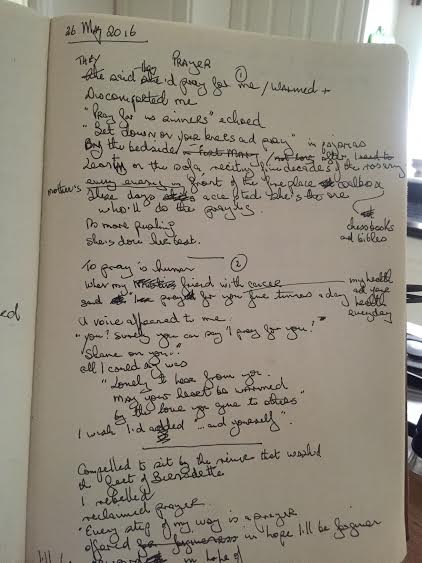 26 May 2016
PRAYER
THEY
She said she'd pray for me / warmed +
①
Discomforted me
"Pray for us sinners" echoed
"Get down on your knees and pray" in pyjamas
By the bedside
on the sofa, reciting five decades of the rosary
mother's
every evening in front of the fireplace toolbox
These days accepted she's the one
who'll do the praying.
chessbooks
and bibles
No more pushing
She's done her best.
②
To pray is human
When my friend with cancer my health
said I pray for you five times a day and your
health
everyday
A voice appeared to me.
"you? Surely you can say "I pray for you?"
Shame on you."
all I could say was
"Lovely to hear from you.
May your heart be warmed
by the love you give to others"
I wish I'd added "... and yourself".
Compelled to sit by the river that washed
the feet of Bernadette
I rebelled
reclaimed prayer.
"Every step of my way is a prayer
offered for forgiveness in hope I'll be forgiven
in hope of
ed